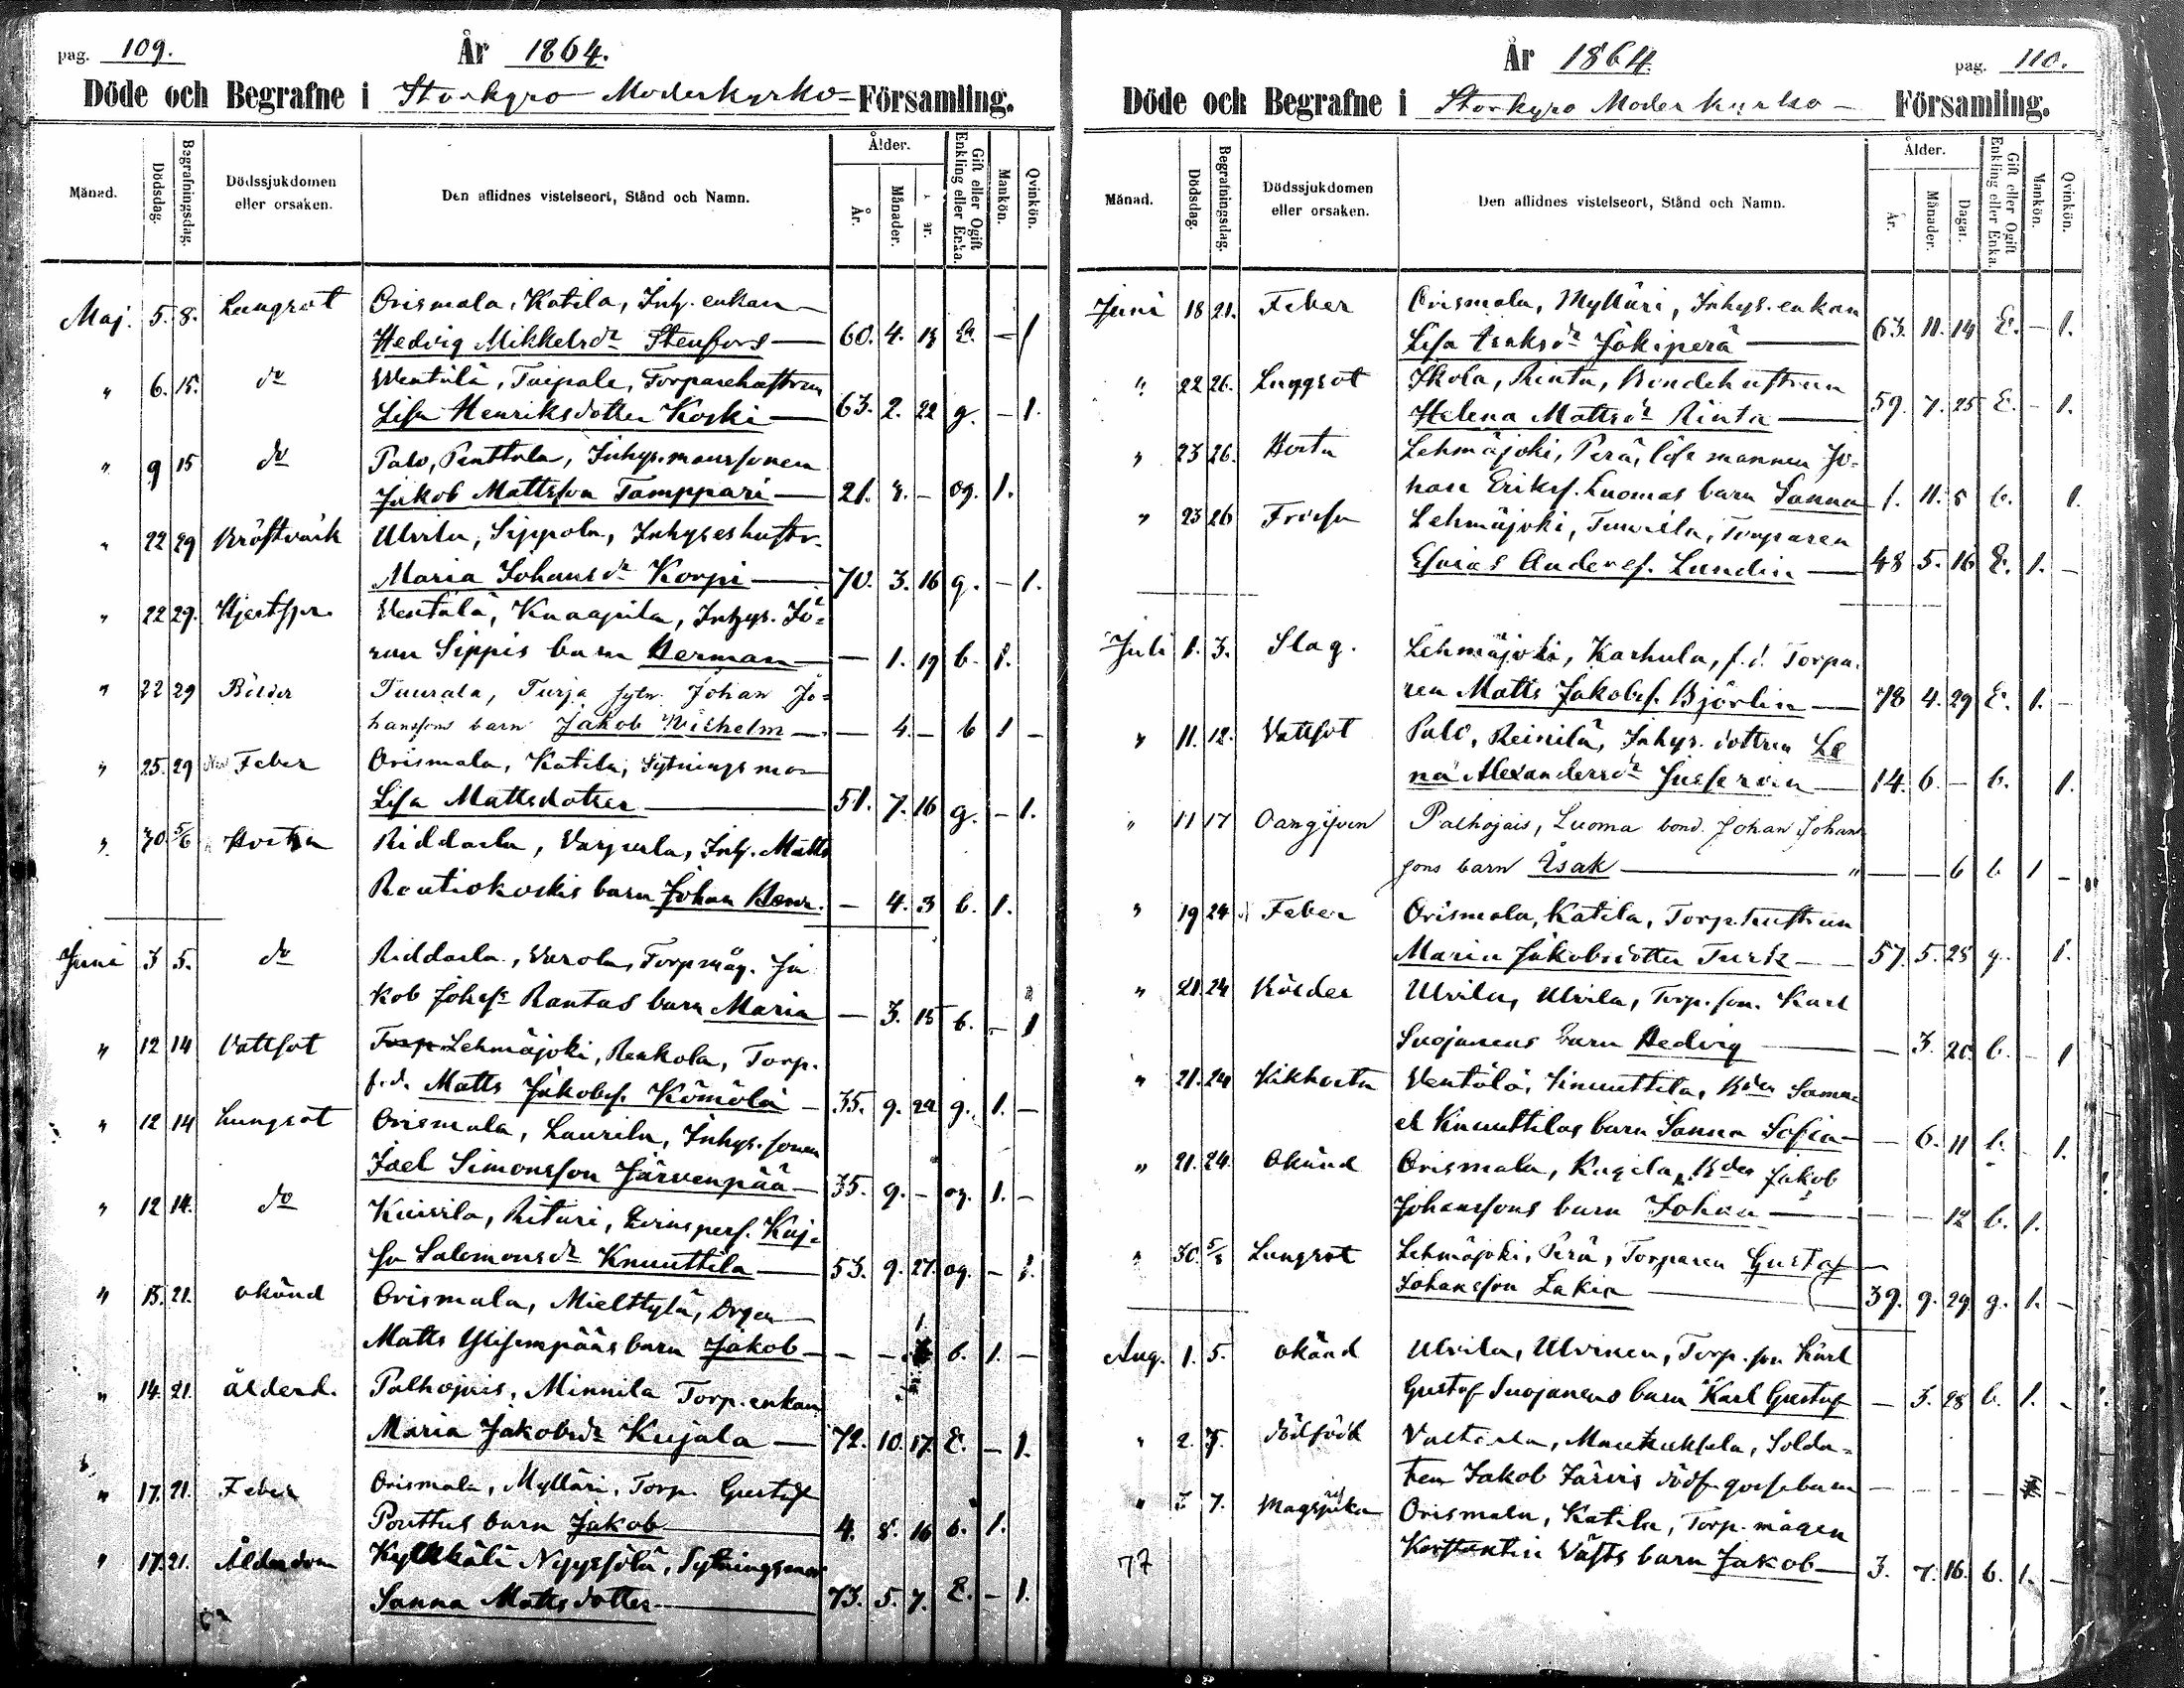 pag. 109.
År 1864.
Döde och Begrafne i Storkyro Moderkyrko- Församling.
Månad. Dödsdag. Begrafningsdag. Dödssjukdomen eller orsaken. Den aflidnes vistelseort, Stånd och Namn. Ålder. År. Månader. Gift eller Ogift Enkling eller Enka. Mankön. Qvinkön.
Maj. 5. 8. Lungsot Orismala, Katila, Inh. enkan
Hedvig Mikkelsdr Stenfors 60. 4. 13 E. – 1
" 6. 15. do Wentälä, Taipale, Torparehustrun
Lisa Henriksdotter Koski 63. 2. 22 g. – 1.
" 9 15 do Palo, Penttala, Inhys.mans sonen
Jakob Mattsson Tamppari 21. 8. – og. 1.
" 22 29 Bröstvärk Ulvila, Sippola, Inhyseshustr.
Maria Johansdr Korpi 70. 3. 16 g. – 1.
" 22 29. Hjertspr. Ventälä, Knaapila, Inhys. Jö-
ran Sippis barn Herman – 1. 19 b. 1.
" 22 29 Bölder Tuurala, Turja sytn. Johan Jo-
hanssons barn Jakob Wilhelm – 4. – b 1 –
" 25. 29 Feber Orismala, Katila, Sytningsmor
Lisa Mattsdotter 51. 7. 16 g. – 1.
" 30. 5/6 Hosta Riddarla, Varpula, Inh. Matts
Rautiokoskis barn Johan Henr. – 4. 3 b. 1.
Juni 3 5. do Riddarla, Warola, Torpmåg. Ja
kob Johss Rantas barn Maria – 3. 15 b. – 1
" 12 14 Vattsot Torp Lehmäjoki, Renkola, Torp.
f.d. Matts Jakobss. Kömölä 35. 9. 22 g. 1. –
" 12 14 Lungsot Orismala, Laurila, Inhys. sonen
Joel Simonsson Järvenpää 35. 9. – og. 1. –
" 12 14. do Kuivila, Rituri, Qvinspers. Kaj-
sa Salomonsdr Knuuttila 53. 9. 27. og. – 1.
" 15. 21. okänd Orismala, Mielttylä,
Matts Ylisenpääs barn Jakob – – 1. b. 1. –
" 14. 21. ålderd. Palhojais, Minnila Torp. enkan
Maria Jakobsdr Kujala 72. 10. 17. E. – 1.
" 17. 21. Feber Orismala, Mylläri, Torp. Gustaf
Ponttus barn Jakob 4. 8. 16 b. 1.
" 17. 21. Ålderdom Kylkkälä Nyyssölä, Sytningsmor
Sanna Mattsdotter 73. 5. 7. E. – 1.
År 1864
pag. 110.
Döde och Begrafne i Storkyro Moderkyrko – Församling.
Månad. Dödsdag. Begrafningsdag. Dödssjukdomen eller orsaken. Den aflidnes vistelseort, Stånd och Namn. Ålder. År. Månader. Dagar. Gift eller Ogift Enkling eller Enka. Mankön. Qvinkön.
Juni 18 21. Feber Orismala, Mylläri, Inhys. enkan
Lisa Isaksdr Jäkiperä 63. 11. 14 E. – 1.
" 22 26. Lungsot Ikola, Rinta, Bondehustrun
Helena Mattsdr Rinta 59. 7. 25 E. – 1.
" 23 26. Hosta Lehmäjoki, Perä, löse mannen Jo-
han Erikss. Luomas barn Sanna 1. 11. 8 b. 1.
" 23 26 Frossa Lehmäjoki, Tuurila, Torparen
Esaias Anderss. Lundin 48 5. 16 E. 1. –
Juli 1. 3. Slag. Lehmäjoki, Karhula, f.d. Torpa-
ren Matts Jakobss. Björlin 78 4. 29 E. 1. –
" 11. 12. Vattsot Palo, Reinilä, Inhys. dottren Le
na Alexandersdr 14. 6. – b. 1.
" 11 17 Oangifven Palhojais, Luoma bond. Johan Johan
sons barn Isak " – – 6 b 1 –
" 19 24 Feber Orismala, Katila, Torp.hustrun
Maria Jakobsdotter Turk 57. 5. 25 g. 1.
" 21. 24 Bölder Ulvila, Ulvila, Torp. son. Karl
Suojanens barn Hedvig – 3. 20. b. – 1
" 21. 24 Kikhosta Ventälä, Knuuttila, Bden Samu-
el Knuuttilas barn Sanna Sofia – 6. 11 b. – 1.
" 21. 24. Okänd Orismala, Kugila, Bden Jakob
Johanssons barn Johan – – 12 b. 1.
" 30. 5/8 Lungsot Lehmäjoki, Perä, Torparen Gustaf
Johansson Lakia 39. 9. 29 g. 1. –
Aug. 1. 5. okänd Ulvila, Ulvinen, Torp. son Karl
Gustaf Suojanens barn Karl Gustaf – 3. 28 b. 1. –
" 2. 7. dödfödd Valtarla, Maukuksela, Solda-
ten Jakob Järvis dödf. gossebarn – – – – –
" 3 7. Magsjuka Orismala, Katila, Torp. mågen
Konstantin Väfts barn Jakob 3. 7. 16. b. 1. –
77